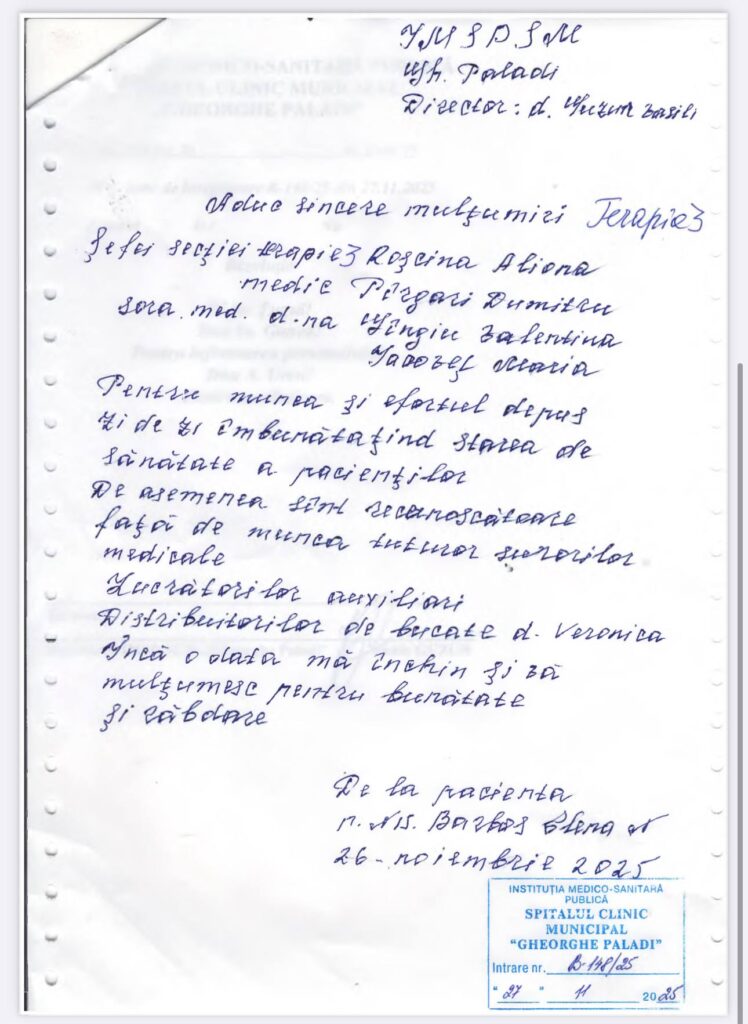 IMSP SCM
Gh. Paladi
Director: d. Guzun Vasili
Aduc sincere mulțumiri Terapie 3
Șefei secției terapie 3 Roșcina Aliona
medic Pîrgari Dumitru
sora med. d-na Gîngiu Valentina
Iacoveț Maria
Pentru munca și efortul depus
zi de zi îmbunătațind starea de
sănătate a pacienților
De asemenea sînt recunoscătoare
față de munca tuturor surorilor
medicale
Lucrătorilor auxiliari
Distribuitorilor de bucate d. Veronica
Încă o data mă închin și vă
mulțumesc pentru bunătate
și răbdare
De la pacienta
Barbos Elena
26 - noiembrie 2025
INSTITUȚIA MEDICO-SANITARĂ
PUBLICĂ
SPITALUL CLINIC
MUNICIPAL
"GHEORGHE PALADI"
Intrare nr. B-148/25
"27" 11 2025